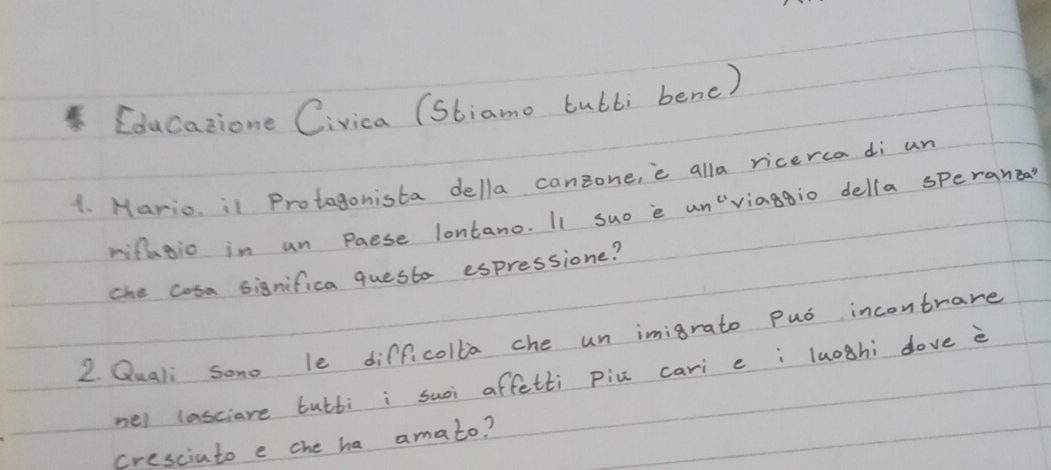 Educazione Civica (Stiamo tutti bene)
1. Mario, il Protagonista della canzone, è alla ricerca di un
rifugio in un Paese lontano. Il suo è un "viaggio della speranza"
che cosa significa questa espressione?
2. Quali sono le difficoltà che un imigrato può incontrare
nel lasciare tutti i suoi affetti più cari e i luoghi dove è
cresciuto e che ha amato?